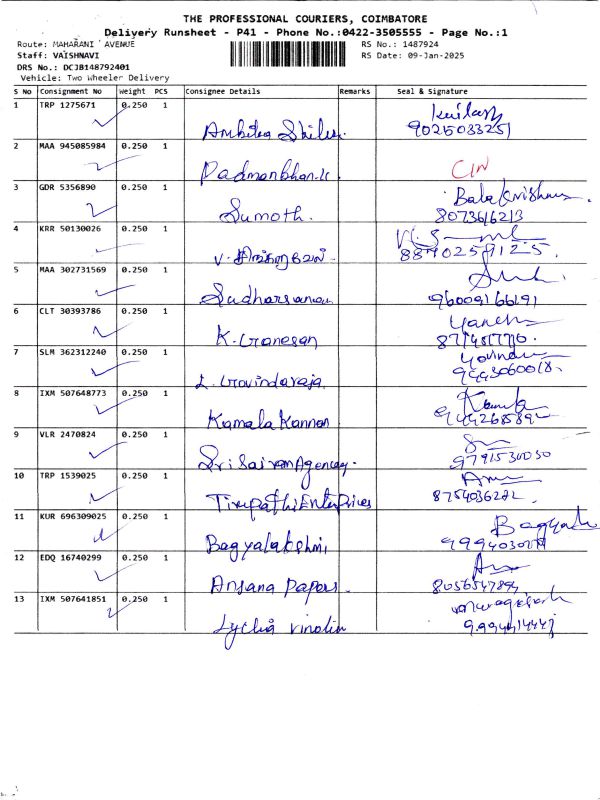 THE PROFESSIONAL COURIERS, COIMBATORE
Delivery Runsheet - P41 - Phone No.:0422-3505555 - Page No.:1
Route: MAHARANI AVENUE RS No.: 1487924
Staff: VAISHNAVI RS Date: 09-Jan-2025
DRS No.: DCJB148792401
Vehicle: Two Wheeler Delivery
S No Consignment No Weight PCS Consignee Details Remarks Seal & Signature
1 TRP 1275671 0.250 1 Kailash
9025033251
2 MAA 945085984 0.250 1 Padmanbhan.K CIN
3 GDR 5356890 0.250 1 Sumoth. Balakrishnan.
8073616213
4 KRR 50130026 0.250 1
8890259125.
5 MAA 302731569 0.250 1 Sudharsanan
96009166191
6 CLT 30393786 0.250 1 K. Ganesan Ganesh
7 SLM 362312240 0.250 1 L. Govindaraja Govindan
9443060018.
8 IXM 507648773 0.250 1 Kamala Kannan Kamala
9 VLR 2470824 0.250 1 Sri Sairam Agencay.
9791530030
10 TRP 1539025 0.250 1 Tirupathi Enterprices
8754036222
11 KUR 696309025 0.250 1 Bagyalakshmi Bagyalak
12 EDQ 16740299 0.250 1 Ansana Papers
8056547894
13 IXM 507641851 0.250 1 Lychia vinolin